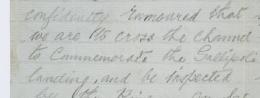 confidently rumoured that
we are to cross the channel
to Commemorate the Gallipoli
landing, and be inspected
by the King